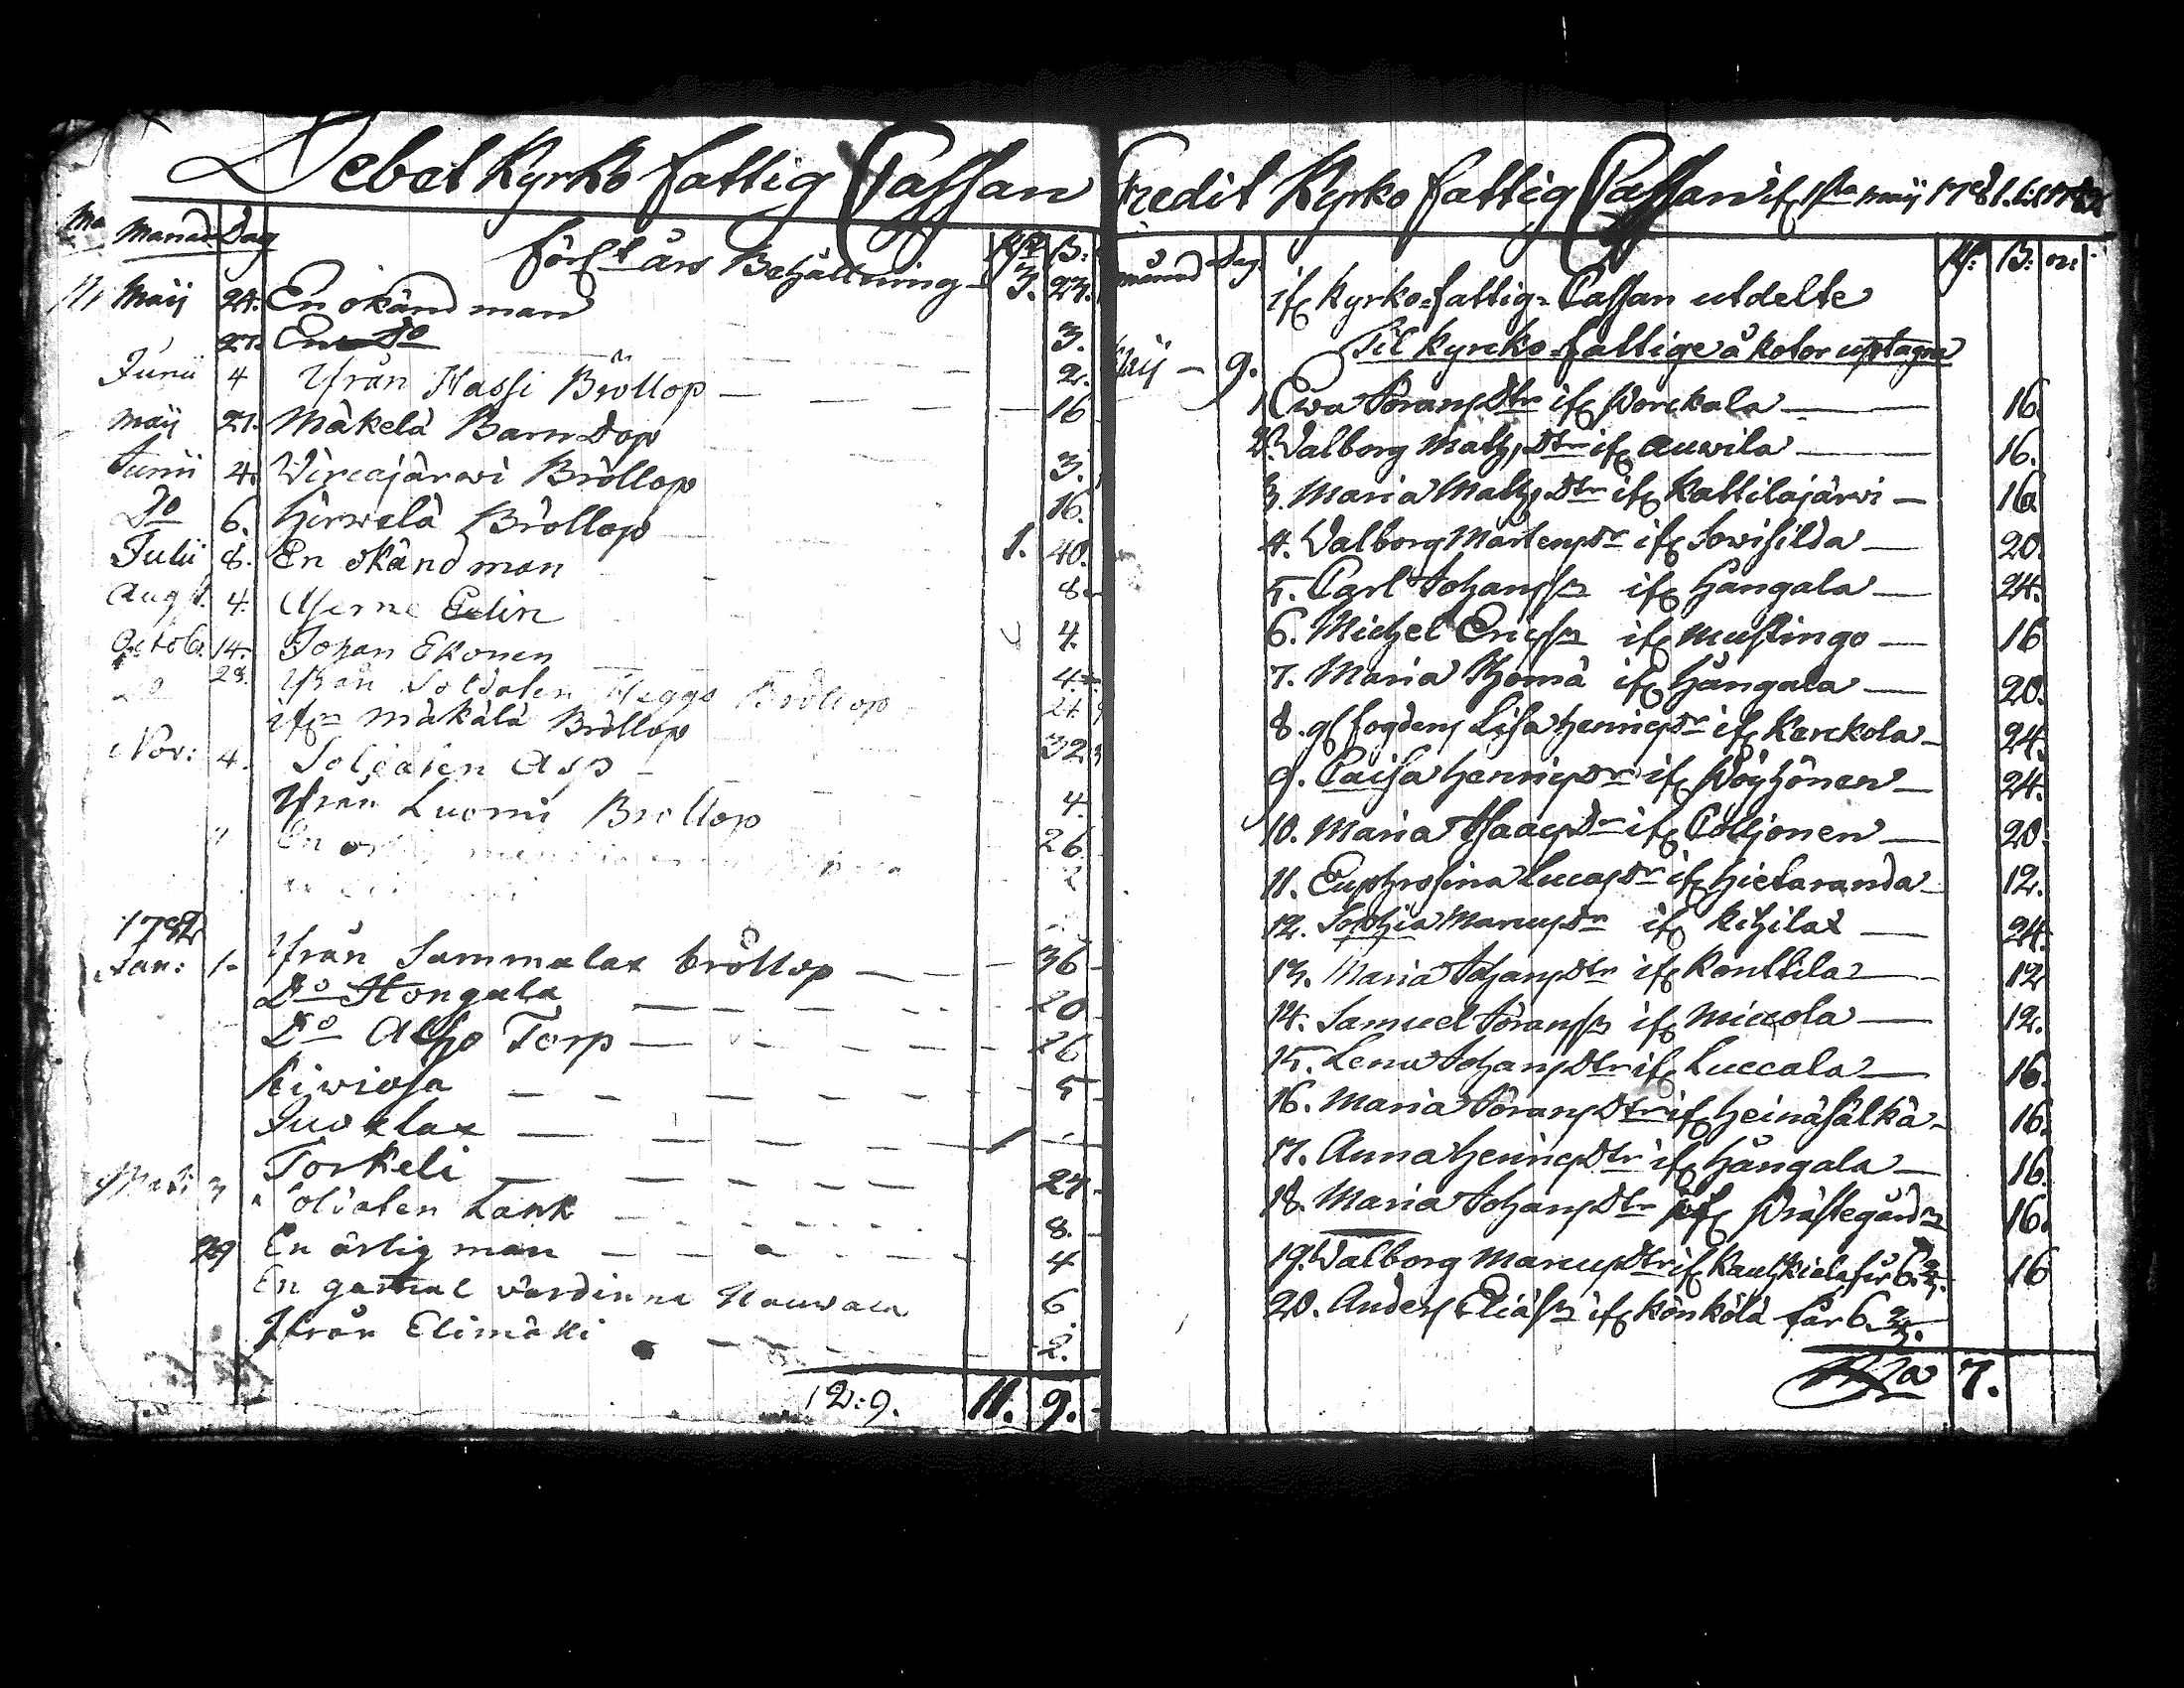 Debet Kyrko fattig Cassan
Månad Dag
förfl: års Behållning 3. 23.
Maij 24. En okänd man 3.
27. En Do 2.
Junii 4 Ifrån Hassi Bröllop 16
Maij 27. Mäkelä BarnDop 3.
Junii 4. Wircajärwi Bröllop 16.
Do 6. Hirwelä Bröllop 1. 40.
Julii 8. En okänd man 8.
Augst. 4. Elin 4.
Octob. 14. Johan Ekonen 4.
Do 28. Ifrån Soldaten Heggs Bröllop 24
ifrn Mäkälä Bröllop 32
Nov: 4. Soldaten Asp 4.
Ifrån Luomi Bröllop 26
En
1782
Jan: 1. Ifrån Sammalax bröllop 36
Do Hongala 20
Do Alho Torp 26
Kiwioja 5
Juoklax 1
Torkeli 24
3 Soldaten Lank 8.
29 En ärlig man 4
En gammal värdinna Nauwala 6
Ifrån Elimäki 2.
12:9. 11. 9.
Credit Kyrko fattig Cassan ifr 1sta Maij 1781 til 1782
månad Dag Rf: B: or:
ifr Kyrko-fattig-Cassan utdelte
Maij 9. Til Kyrcko-fattige å kotor uptagne
1. Ewa Göransdtr ifr Worckala 16.
2. Walborg Matzdtr ifr Auwila 16.
3. Maria Matzdtr ifr Kattilajärwi 16
4. Walborg Mårtensdr ifr Sowisilda 20.
5. Carl Johansson ifr Hångala 24.
6. Michel Ericsson ifr Mustingo 16
7. Maria Thoma ifr Hångala 20.
8. gl fogdens Lisa Henricsdr ifr Karckola 24.
9. Caisa Henricsdr ifr Pöyhönen 24.
10. Maria Isaacsdr ifr Colljonen 20.
11. Euphrosina Lucasdr ifr Hietaranda 12.
12. Sophia Marcusdr ifr Kihilax 24.
13. Maria Johansdtr ifr Konttila 12
14. Samuel Göransson ifr Miccola 12.
15. Lena Johansdtr ifr Luccala 16.
16. Maria Göransdtr ifr Heinäsälkä 16.
17. Anna Henricsdtr ifr Hångala 16.
18. Maria Johansdtr ifr Prästegården 16.
19. Walborg Marcusdtr ifr Kautzkiala får 6. 16
20. Anders Eliäson ifr Könkölä får 6.
7.